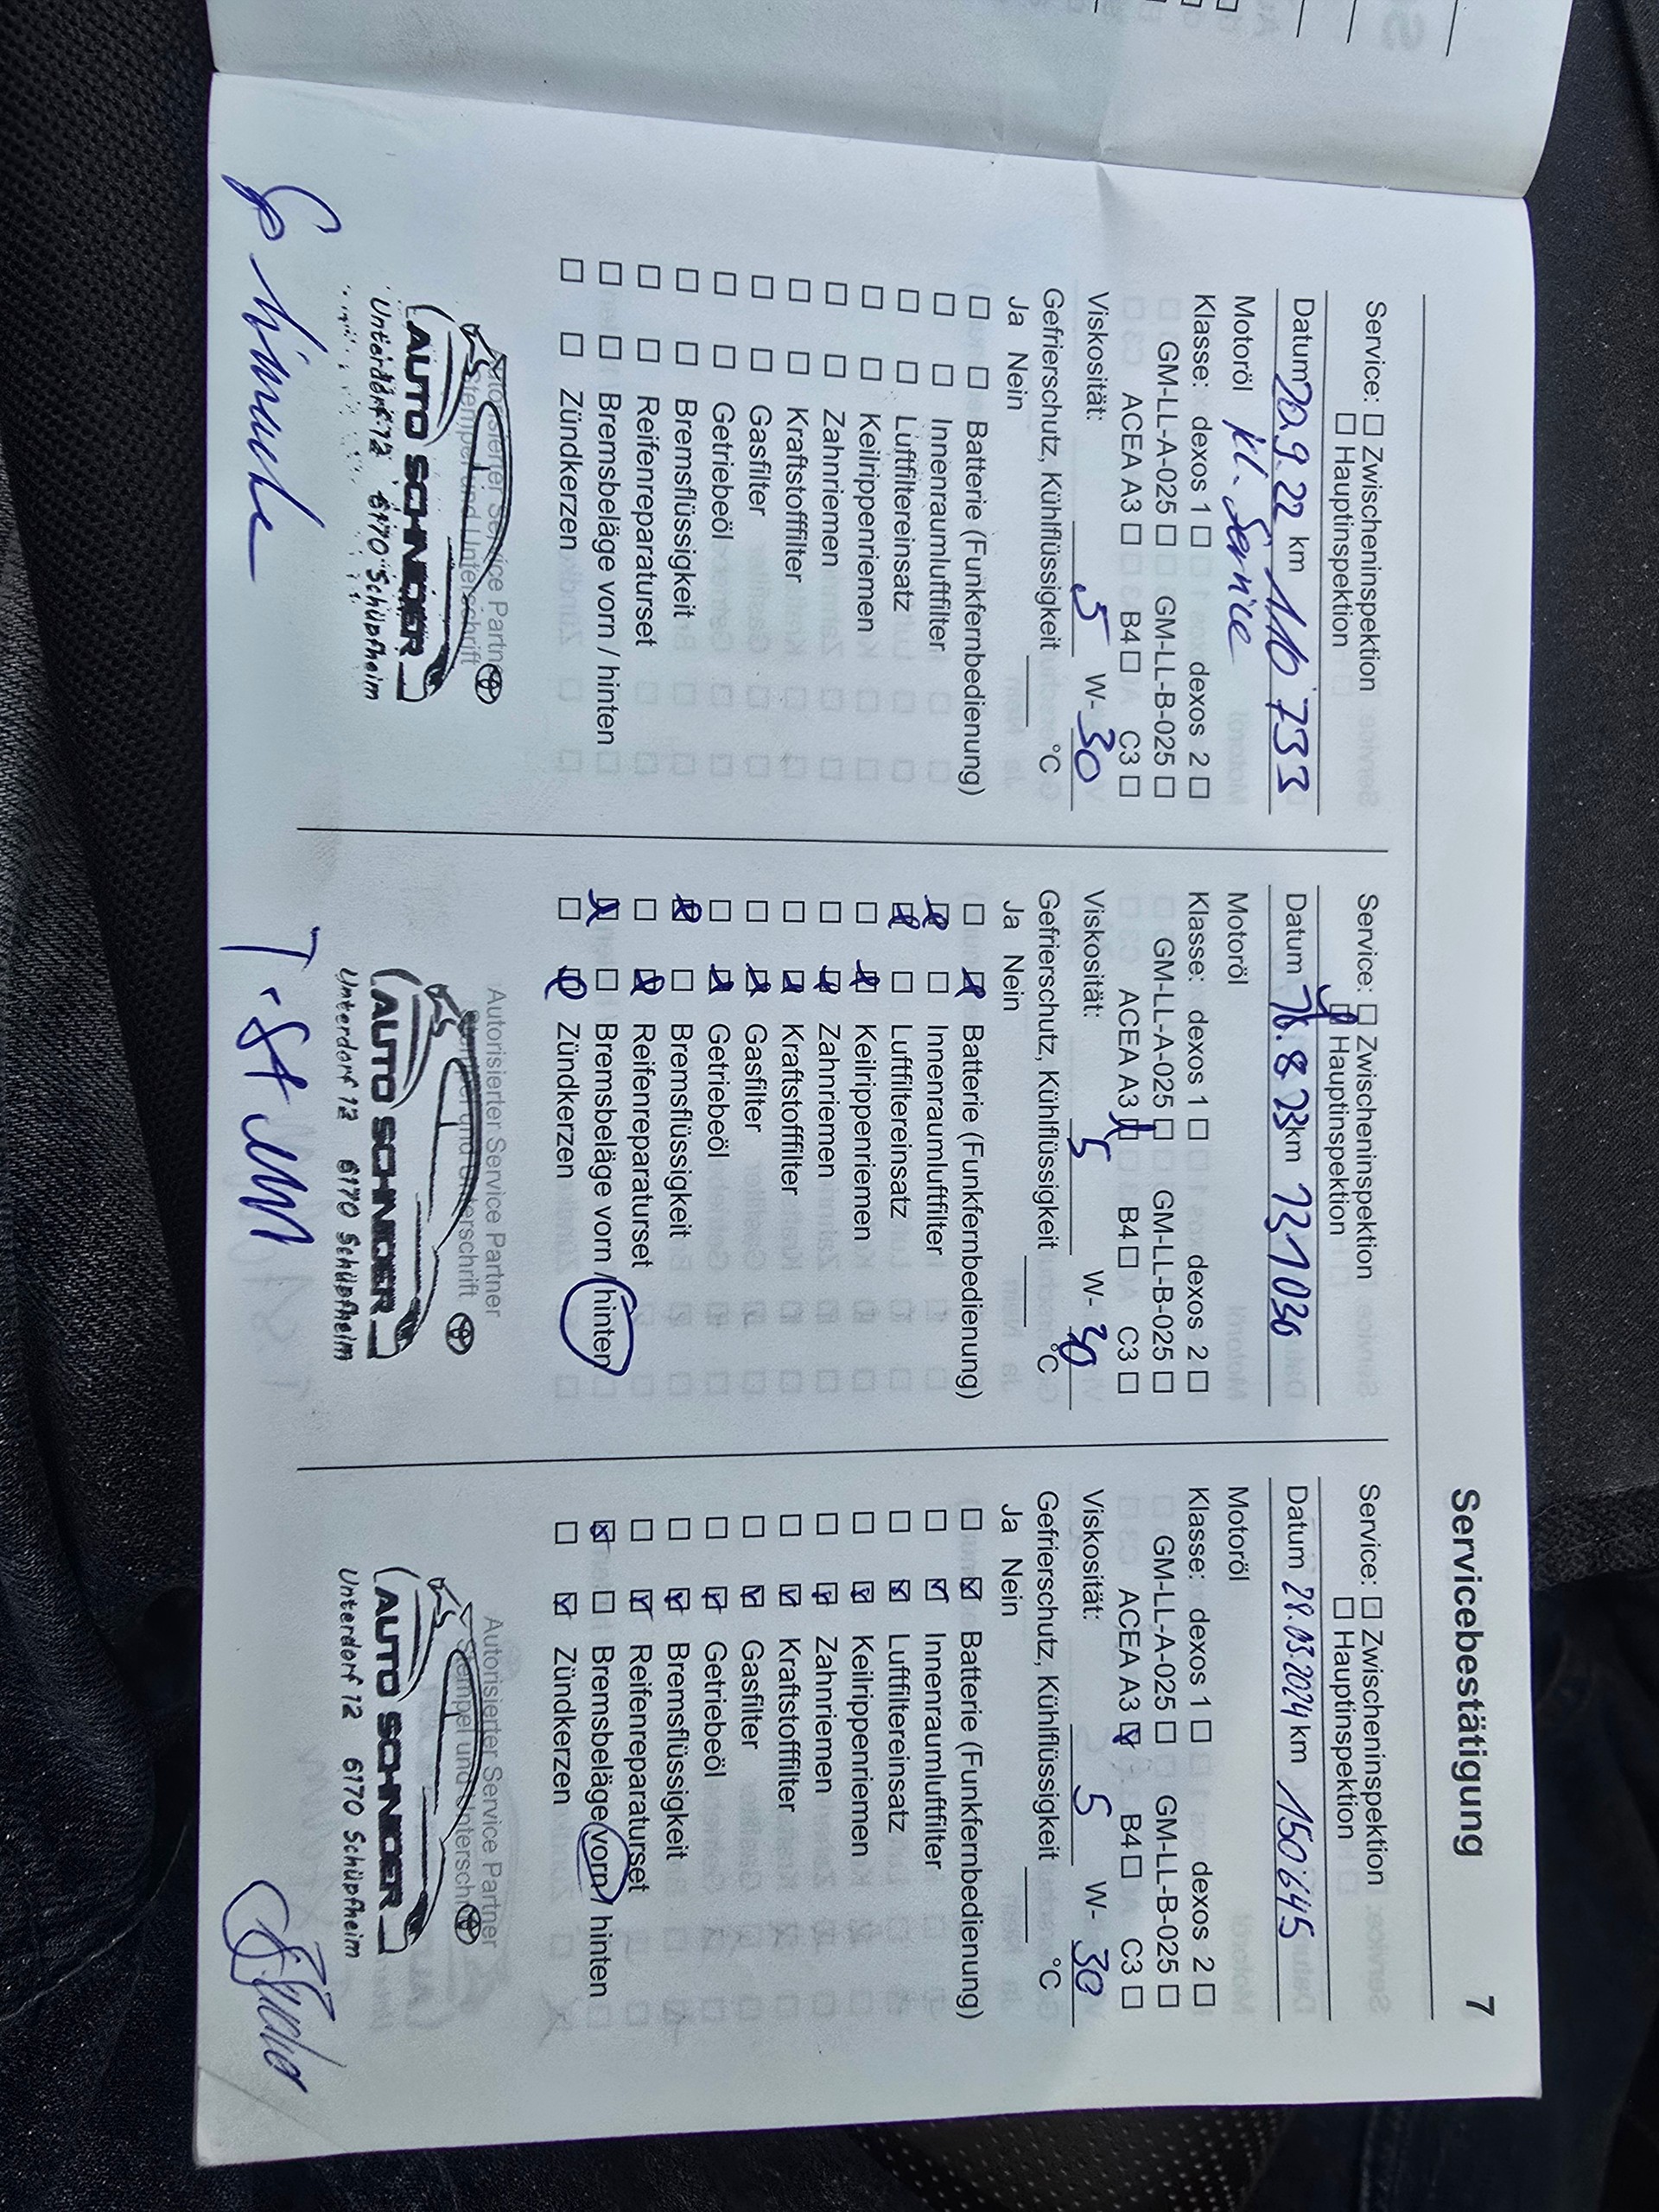 Servicebestätigung 7
Service: ☐ Zwischeninspektion
☐ Hauptinspektion
Datum 20.9.22 km 110'733
Motoröl kl. Service
Klasse: dexos 1 ☐ dexos 2 ☐
☐ GM-LL-A-025 ☐ GM-LL-B-025 ☐
ACEA A3 ☐ B4 ☐ C3 ☐
Viskosität: 5 W-30
Gefrierschutz, Kühlflüssigkeit ____ °C
Ja Nein
☐ ☐ Batterie (Funkfernbedienung)
☐ ☐ Innenraumluftfilter
☐ ☐ Luftfiltereinsatz
☐ ☐ Keilrippenriemen
☐ ☐ Zahnriemen
☐ ☐ Kraftstofffilter
☐ ☐ Gasfilter
☐ ☐ Getriebeöl
☐ ☐ Bremsflüssigkeit
☐ ☐ Reifenreparaturset
☐ ☐ Bremsbeläge vorn / hinten
☐ ☐ Zündkerzen
Autorisierter Service Partner
Stempel und Unterschrift
AUTO SCHNIDER
Unterdorf 12 6170 Schüpfheim
Service: ☐ Zwischeninspektion
☒ Hauptinspektion
Datum .8.23 km 131030
Motoröl
Klasse: dexos 1 ☐ dexos 2 ☐
GM-LL-A-025 ☐ GM-LL-B-025 ☐
ACEA A3 ☒ B4 ☐ C3 ☐
Viskosität: 5 W-30
Gefrierschutz, Kühlflüssigkeit ____ °C
Ja Nein
☐ ☒ Batterie (Funkfernbedienung)
☒ ☐ Innenraumluftfilter
☒ ☐ Luftfiltereinsatz
☐ ☒ Keilrippenriemen
☐ ☒ Zahnriemen
☐ ☒ Kraftstofffilter
☐ ☒ Gasfilter
☐ ☒ Getriebeöl
☒ ☐ Bremsflüssigkeit
☐ ☒ Reifenreparaturset
☒ ☐ Bremsbeläge vorn / hinten
☐ ☒ Zündkerzen
Autorisierter Service Partner
Stempel und Unterschrift
AUTO SCHNIDER
Unterdorf 12 6170 Schüpfheim
Service: ☐ Zwischeninspektion
☐ Hauptinspektion
Datum 28.03.2024 km 150'645
Motoröl
Klasse: dexos 1 ☐ dexos 2 ☐
GM-LL-A-025 ☐ GM-LL-B-025 ☐
ACEA A3 ☒ B4 ☐ C3 ☐
Viskosität: 5 W-30
Gefrierschutz, Kühlflüssigkeit ____ °C
Ja Nein
☐ ☒ Batterie (Funkfernbedienung)
☐ ☒ Innenraumluftfilter
☐ ☒ Luftfiltereinsatz
☐ ☒ Keilrippenriemen
☐ ☒ Zahnriemen
☐ ☒ Kraftstofffilter
☐ ☒ Gasfilter
☐ ☒ Getriebeöl
☐ ☒ Bremsflüssigkeit
☐ ☒ Reifenreparaturset
☒ ☐ Bremsbeläge vorn / hinten
☐ ☒ Zündkerzen
Autorisierter Service Partner
Stempel und Unterschrift
AUTO SCHNIDER
Unterdorf 12 6170 Schüpfheim